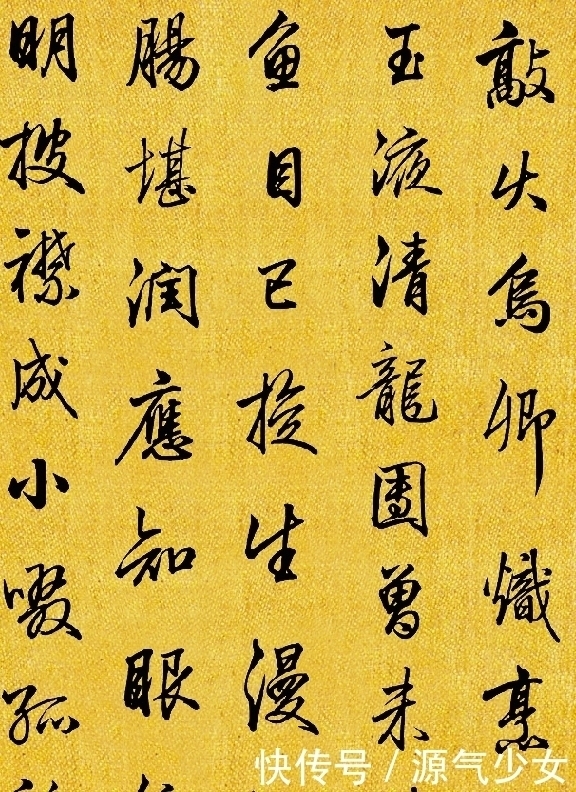 敲火烏卿熾烹
玉液清龍團曾未
魚目已生漫
腸堪潤應知眼
明披襟成小啜孤
快传号/源气少女